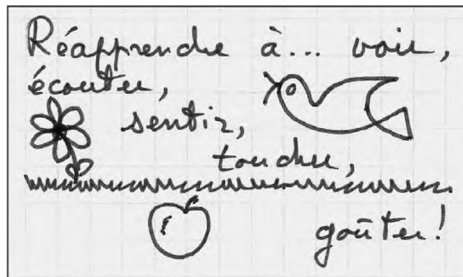 Réapprendre à... voir,
écouter,
sentir,
toucher,
goûter!